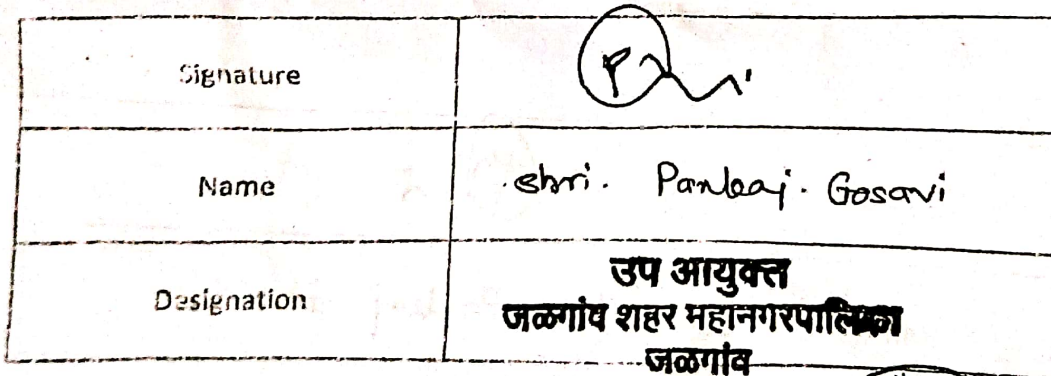 Signature
Name
shri. Pankaj. Gosavi
Designation
उप आयुक्त
जळगांव शहर महानगरपालिका
जळगांव